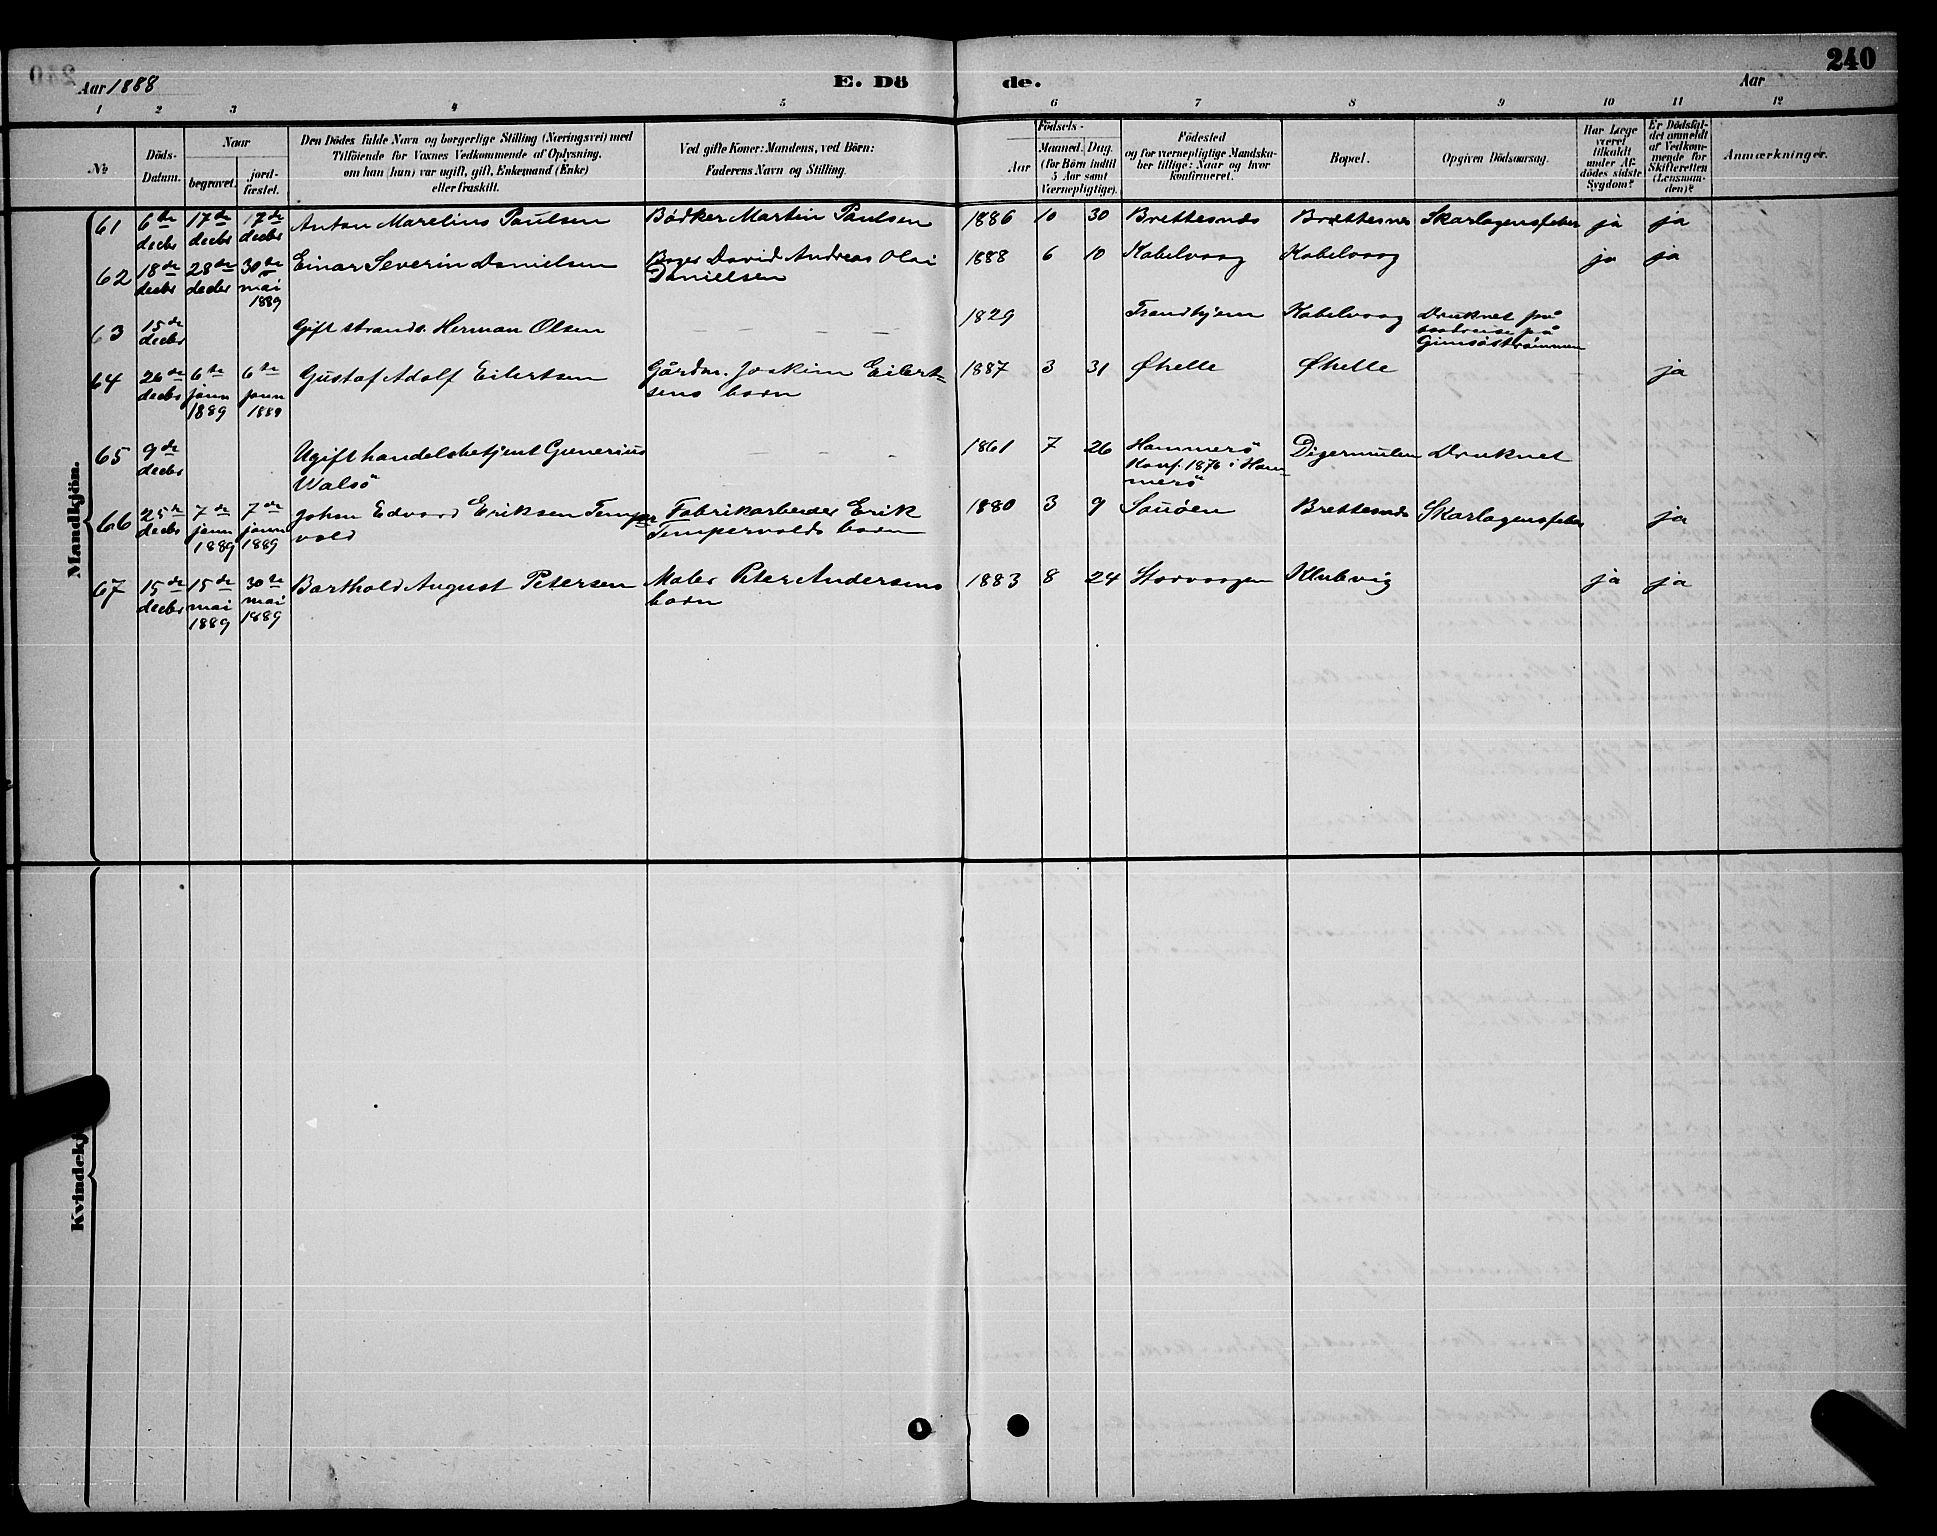 240
Aar 1888
E. Dö
de.
Aar
1 2 3 4 5 6 7 8 9 10 11 12
№
Döds-
Datum.
Naar
begravet.
jord-
fæstet.
Den Dödes fulde Navn og borgerlige Stilling (Næringsvei) med
Tilföiende for Voxnes Vedkommende af Oplysning,
om han (hun) var ugift, gift, Enkemand (Enke)
eller fraskilt.
Ved gifte Koner: Mandens, ved Börn:
Faderens Navn og Stilling.
Födsels-
Aar
Maaned.
Dag.
(for Börn indtil
5 Aar samt
Værnepligtige).
Födested
og for værnepligtige Mandska-
ber tillige: Naar og hvor
konfirmeret.
Bopæl.
Opgiven Dödsaarsag.
Har Læge
været
tilkaldt
under Af-
dödes sidste
Sygdom?
Er Dödsfal-
det anmeldt
af Vedkom-
mende for
Skifteretten
(Lensman-
den)?
Anmærkninger.
Mandkjön.
61 6te decbr 17de decbr 17de decbr Anton Marelius Paulsen Bödker Martin Paulsen 1886 10 30 Brettesnæs Brættesnes Skarlagensfeber ja ja
62 18de decbr 28de decbr 30te mai 1889 Einar Severin Danielsen Bager David Andreas Olai
Danielsen 1888 6 10 Kabelvaag Kabelvaag ja ja
63 15de decbr Gift strands. Herman Olsen — — — 1829 Trondhjem Kabelvaag Druknet på
baadreise på
Gimsöströmmen
64 26de decbr 6te jann 1889 6te jann 1889 Gustaf Adolf Eilertsen Gårdm. Joakim Eilert-
sens barn 1887 3 31 Øhelle Øhelle ja
65 9de decbr Ugift handelsbetjent Gunerius
Walsö — — — 1861 7 26 Hammerö
Konf. 1876 i Ham-
merö Digermulen Druknet
66 25de decbr 7de jann 1889 7de jann 1889 Johan Edvard Eriksen Temper
vold Fabrikarbeider Erik
Tempervolds barn 1880 3 9 Sauöen Brettesnæs Skarlagensfeber ja
67 15de decbr 15de mai 1889 30te mai 1889 Barthold August Petersen Maler Peter Andersens
barn 1883 8 24 Storvaagen Klubvig ja ja
Kvindekj